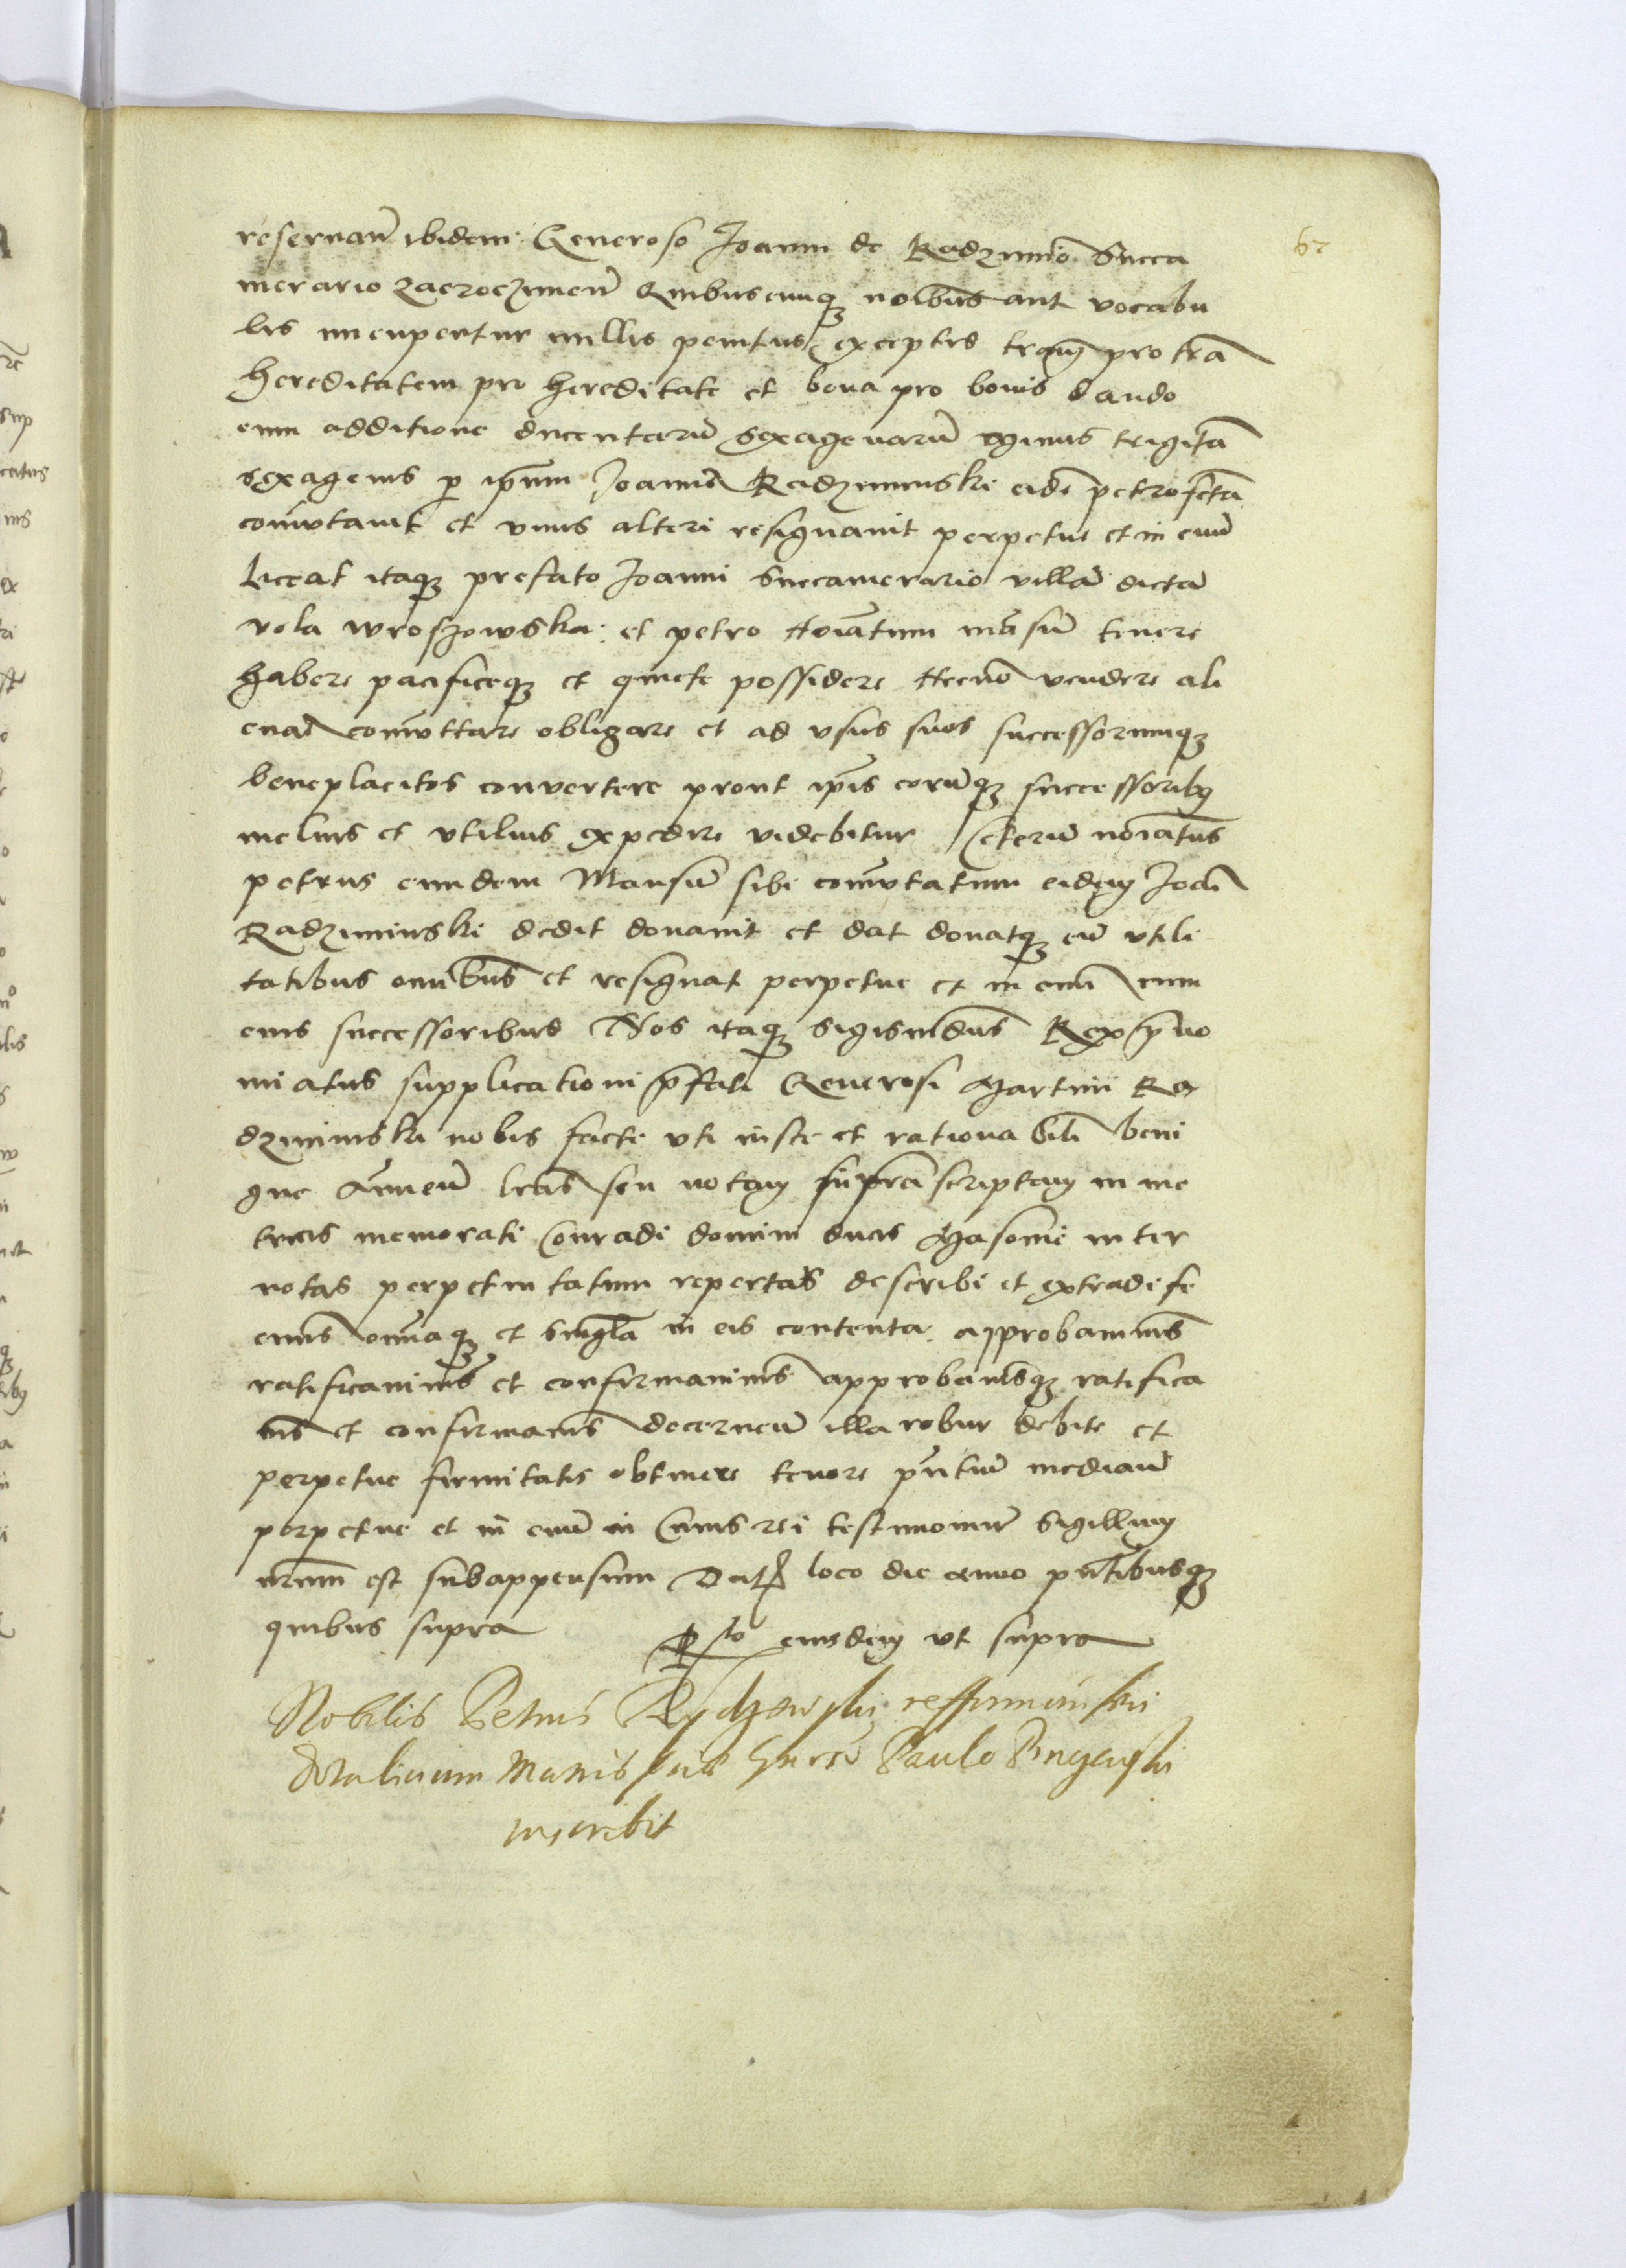 62
reseruan̄ ibidem Generoso Joanni de Radzimino Succa
merario Zacroczimen̄ Quibuscunqꝫ noībus aut vocabu
lis nncupentur nullis penitus exceptis terrā pro trā
hereditatem pro hereditate et bona pro bonis dando
cum additione ducentarū sexagenarū minus trigītā
sexagenis ꝑ ipm̄ Joannē Radziminski eidē petro fctā
com̄utauit et vnus alteri resignauit perpetue et in euū
Liceat itaqꝫ prefato Joanni Succamerario villā dictā
vola wroszowska et petro noīatum māsū tenere
habere pacificeqꝫ et quiete possidere vendere ali
enare com̄uttare obligare et ad vsus suos successorumqꝫ
beneplacitos convertere prout ip̄is eorūqꝫ successoribꝫ
melius et vtilius expedire videbitur Ceterū noīatus
petrus eundem Mansū sibi com̄utatum eidem Joāni
Radziminski dedit donauit et dat donatqꝫ cū vtili
tatibus om̄ibus et resignat perpetue et in euū cum
eius successoribus Nos itaqꝫ Sigismūdus Rex p̄no
miatus supplicationi p̄fati Generosi Martini Ra
dziminski nobis facte vti iuste et rationabili beni
gne Annuen̄ lrās seu notam suprascriptam in me
tricis memorati Conradi domini ducis Masouie inter
notas perpetuitatum repertas describi et extradi fe
cimus om̄iaqꝫ et singula in eis contenta approbauimus
ratificauimus et confirmauimus approbamusqꝫ ratifica
mus et confirmamus decernen̄ illa robur debite et
perpetue firmitatis obtinere tenore pn̄tiū median̄
perpetue et in euū in Cuius rei testimonium Sigillum
nr̄um est subappensum Datꝭ loco die anno pn̄tibusqꝫ
quibus supra
Rto eiusdem vt supra
Nobilis Petrus
dotalicium Matris sue Paulo
inscribit